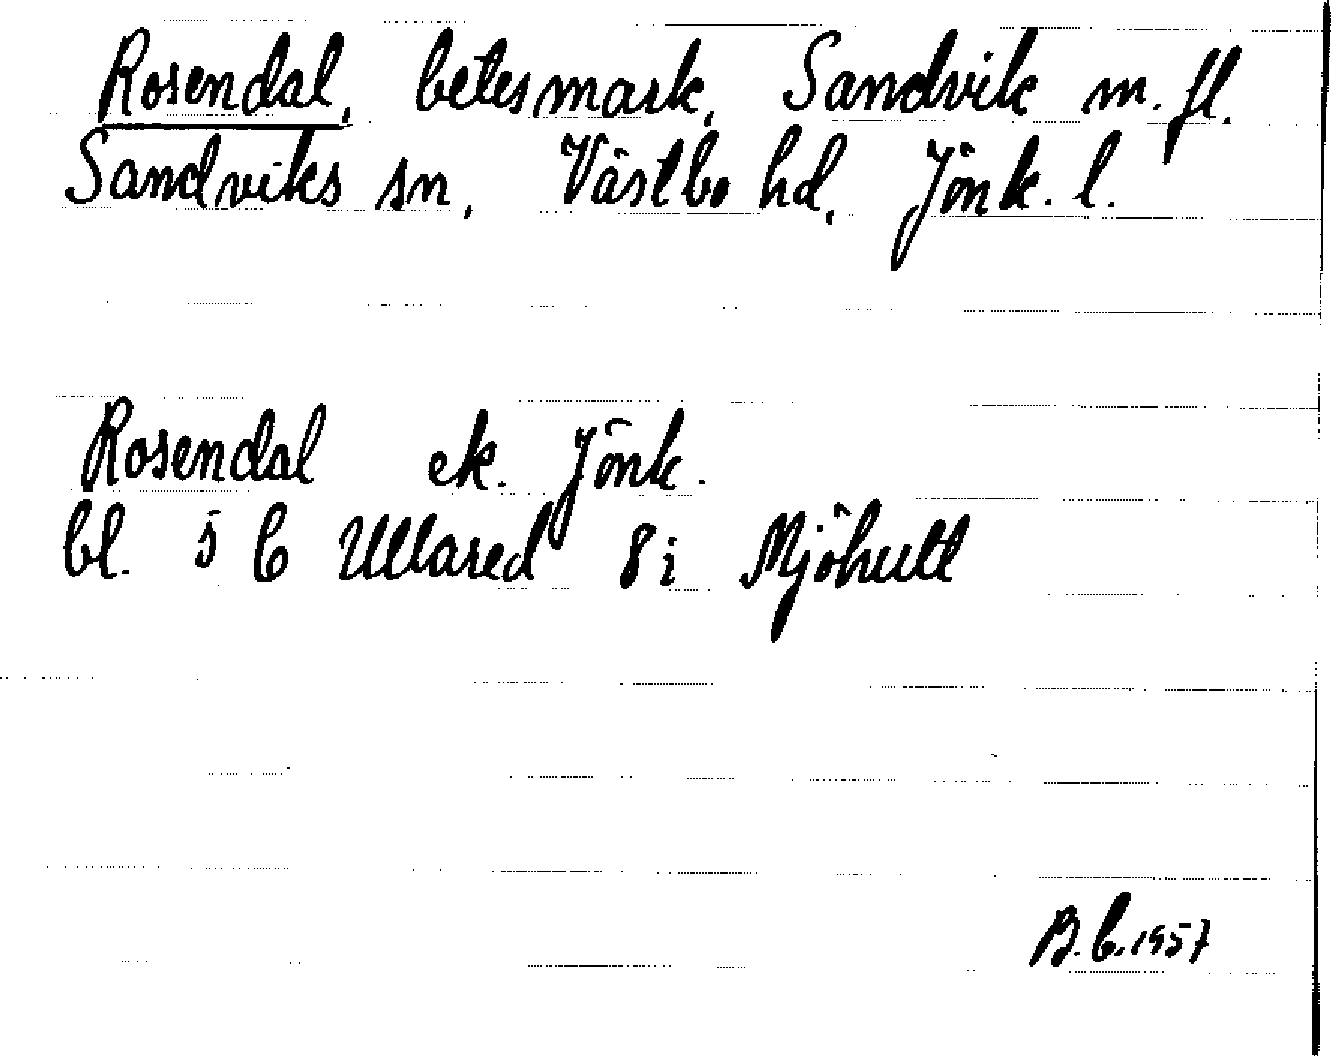 Rosendal, betesmark, Sandvik m. fl.
Sandviks sn, Västbo hd, Jönk. l.
Rosendal ek. Jönk.
bl. 5 C Ullared 8 i Mjöhult
B.C. 1957